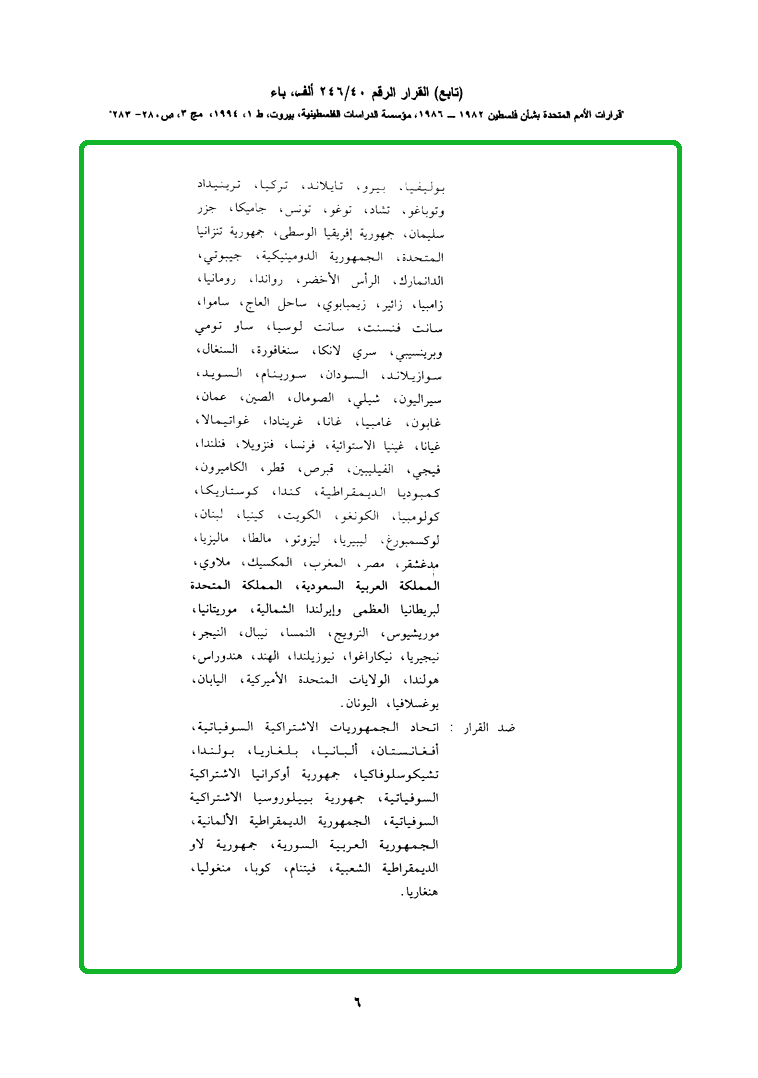 (تابع) القرار الرقم ٢٤٦/٤٠ ألف، باء
"قرارات الأمم المتحدة بشأن فلسطين ١٩٨٢ – ١٩٨٦، مؤسسة الدراسات الفلسطينية، بيروت، ط ١، ١٩٩٤، مج ٣، ص٢٨٠- ٢٨٣"
بوليفيا، بيرو، تايلاند، تركيا، ترينيداد
وتوباغو، تشاد، توغو، تونس، جاميكا، جزر
سليمان، جمهورية إفريقيا الوسطى، جمهورية تنزانيا
المتحدة، الجمهورية الدومينيكية، جيبوتي،
الدانمارك، الرأس الأخضر، رواندا، رومانيا،
زامبيا، زائير، زيمبابوي، ساحل العاج، ساموا،
سانت فنسنت، سانت لوسيا، ساو تومي
وبرينسيبي، سري لانكا، سنغافورة، السنغال،
سوازيلاند، السودان، سورينام، السويد،
سيراليون، شيلي، الصومال، الصين، عمان،
غابون، غامبيا، غانا، غرينادا، غواتيمالا،
غيانا، غينيا الاستوائية، فرنسا، فنزويلا، فنلندا،
فيجي، الفيليبين، قبرص، قطر، الكاميرون،
كمبوديا الديمقراطية، كندا، كوستاريكا،
كولومبيا، الكونغو، الكويت، كينيا، لبنان،
لوكسمبورغ، ليبيريا، ليزوتو، مالطا، ماليزيا،
مدغشقر، مصر، المغرب، المكسيك، ملاوي،
المملكة العربية السعودية، المملكة المتحدة
لبريطانيا العظمى وإيرلندا الشمالية، موريتانيا،
موريشيوس، النرويج، النمسا، نيبال، النيجر،
نيجيريا، نيكاراغوا، نيوزيلندا، الهند، هندوراس،
هولندا، الولايات المتحدة الأميركية، اليابان،
يوغسلافيا، اليونان.
ضد القرار : اتحاد الجمهوريات الاشتراكية السوفياتية،
أفغانستان، ألبانيا، بلغاريا، بولندا،
تشيكوسلوفاكيا، جمهورية أوكرانيا الاشتراكية
السوفياتية، جمهورية بييلوروسيا الاشتراكية
السوفياتية، الجمهورية الديمقراطية الألمانية،
الجمهورية العربية السورية، جمهورية لاو
الديمقراطية الشعبية، فيتنام، كوبا، منغوليا،
هنغاريا.
٦